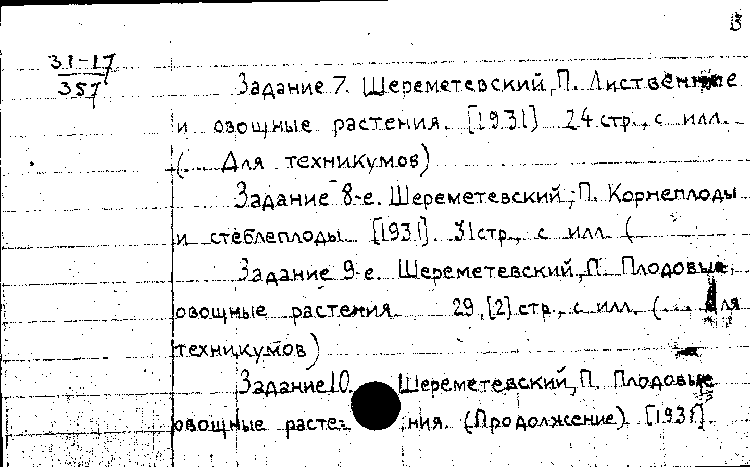 3
31-17
357
Задание 7. Шереметевский, П. Лиственные
и овощные растения. [1931] 24 стр., с илл.
(... Для техникумов)
Задание 8-е. Шереметевский, П. Корнеплоды
и стеблеплоды. [1931]. 31 стр., с илл (
Задание 9-е. Шереметевский, П. Плодовые
овощные растения. 29, [2] стр., с илл. (... Для
техникумов)
Задание 10. Шереметевский, П. Плодовые
овощные расте ния. (Продолжение). [1931].